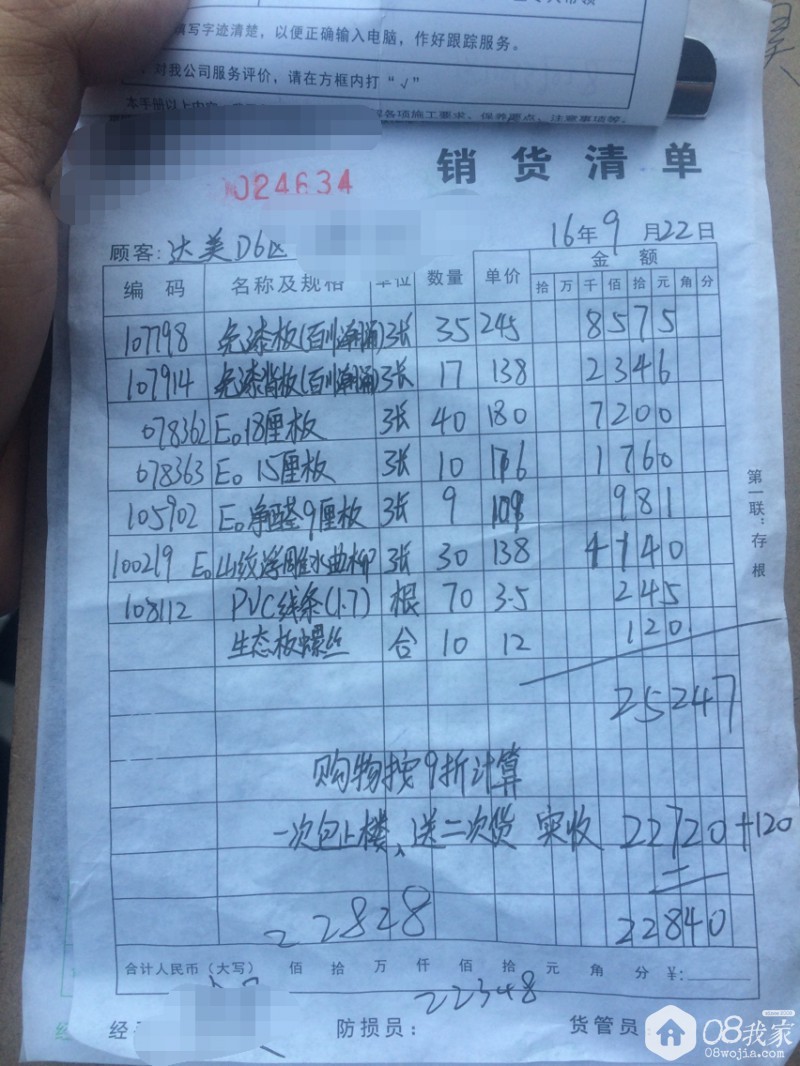 填写字迹清楚，以便正确输入电脑，作好跟踪服务。
对我公司服务评价，请在方框内打“√”
本手册以上内容
各项施工要求、保养要点、注意事项等。
销货清单
024634
顾客：达美D6区 16年9月22日
编码 名称及规格 单位 数量 单价 金额
拾 万 千 佰 拾 元 角 分
107798 免漆板(百川潮涌) 张 35 245 8575
107914 免漆背板(百川潮涌) 张 17 138 2346
078362 E0 18厘板 张 40 180 7200
078363 E0 15厘板 张 10 176 1760
105902 E0净醛9厘板 张 9 109 981
100219 E0山纹浮雕水曲柳 张 30 138 4140
108112 PVC线条(1.7) 根 70 3.5 245
生态板螺丝 合 10 12 120
25247
购物按9折计算
一次包上楼、送二次货 实收 22720+120
=
22828 22840
合计人民币（大写） 佰 拾 万 仟 佰 拾 元 角 分 ¥:
22348
经 防损员： 货管员
第一联：存根
08我家
08wojia.com